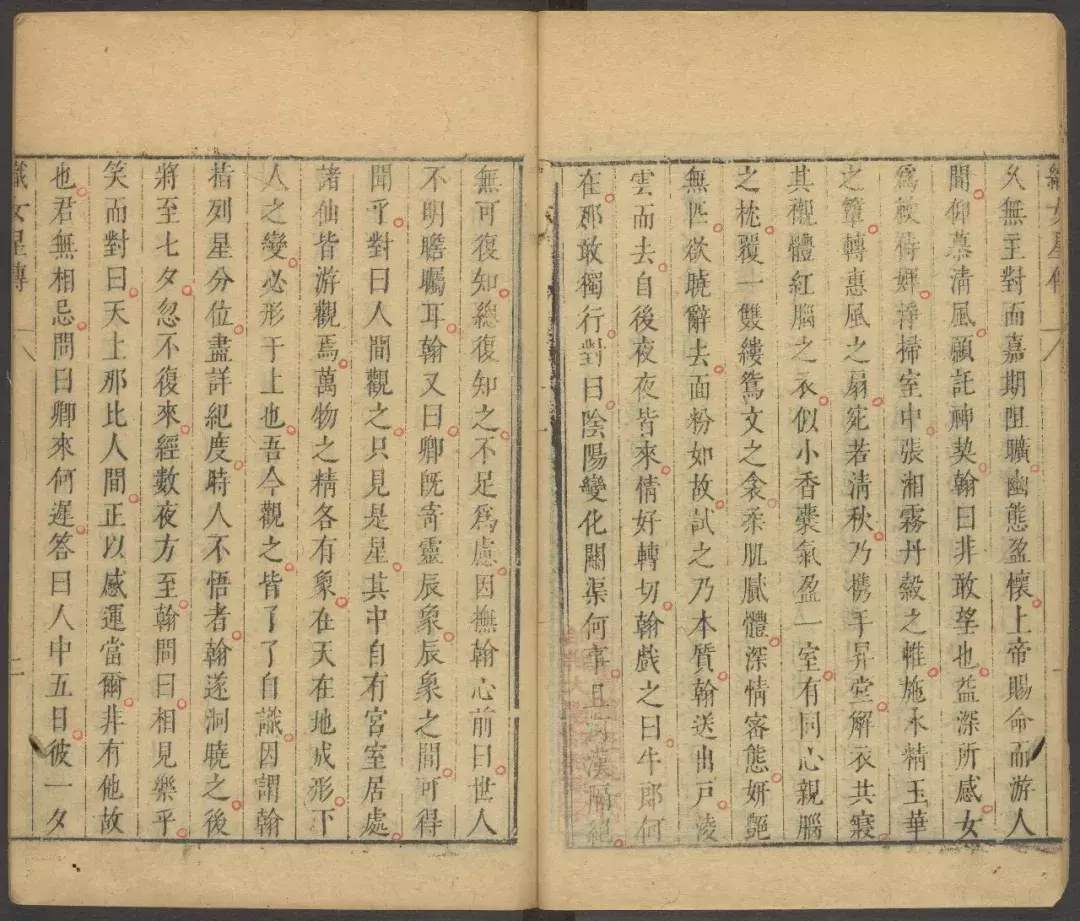 織女星傳
久無主對而嘉期阻曠幽態盈懷上帝賜命而游人
間仰慕清風願託神契翰曰非敢望也益深所感女
爲敕侍婢淨掃室中張湘霧丹縠之帷施水精玉華
之簟轉惠風之扇宛若清秋乃携手昇堂解衣共寢
其襯體紅腦之衣似小香囊氣盈一室有同心親腦
之枕覆一雙縷鴛文之衾柔肌膩體深情密態妍艶
無匹欲曉辭去面粉如故試之乃本質翰送出戶淩
雲而去自後夜夜皆來情好轉切翰戲之曰牛郎何
在那敢獨行對曰陰陽變化關渠何事且河漢隔絕
無可復知總復知之不足爲慮因撫翰心前曰世人
不明瞻矚耳翰又曰卿既寄靈辰象辰象之間可得
聞乎對曰人間觀之只見是星其中自有宮室居處
諸仙皆游觀焉萬物之精各有象在天在地成形下
人之變必形于上也吾今觀之皆了了自識因謂翰
指列星分位盡詳紀度時人不悟者翰遂洞曉之後
將至七夕忽不復來經數夜方至翰問曰相見樂乎
笑而對曰天上那比人間正以感運當爾非有他故
也君無相忌問曰卿來何遲答曰人中五日彼一夕
織女星傳 二